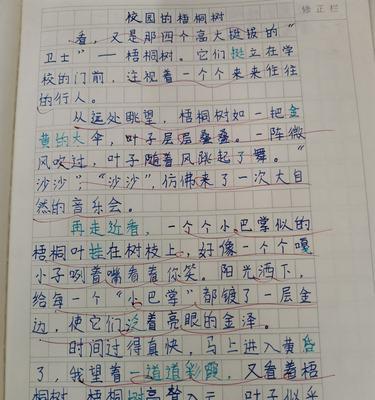 修正栏
校园的梧桐树
看,又是那四个高大挺拔的“
卫士”——梧桐树。它们挺立在学
校的门前,注视着一个个来来往往
的行人。
从远处眺望,梧桐树如一把金
黄的大伞,叶子层层叠叠。一阵微
风吹过,叶子随着风跳起了舞。“
沙沙”,“沙沙”,仿佛来了一次大自
然的音乐会。
再走近看,一个个小巴掌似的
梧桐叶挂在树枝上,好像一个个嘎
小子咧着嘴看着你笑。阳光洒下,
给每一个“小巴掌”都镀了一层金
边,使它们泛着亮眼的金泽。
时间过得真快,马上进入黄昏
了,我望着一道道彩霞,又看着梧
桐树,梧桐树高耸入云,叶子似乎